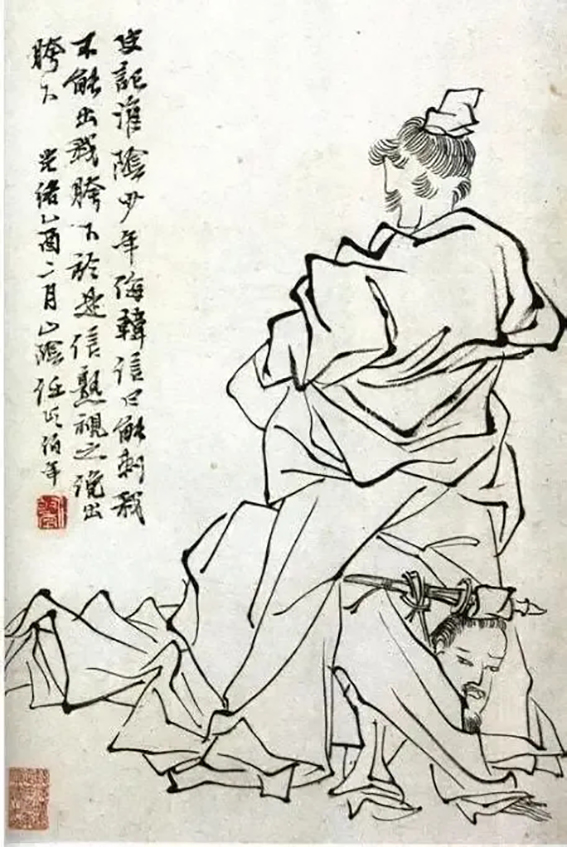 史記淮陰少年侮韓信曰能刺我
不能出我胯下於是信熟視之俛出
胯下　光緒乙酉二月山陰任頤伯年